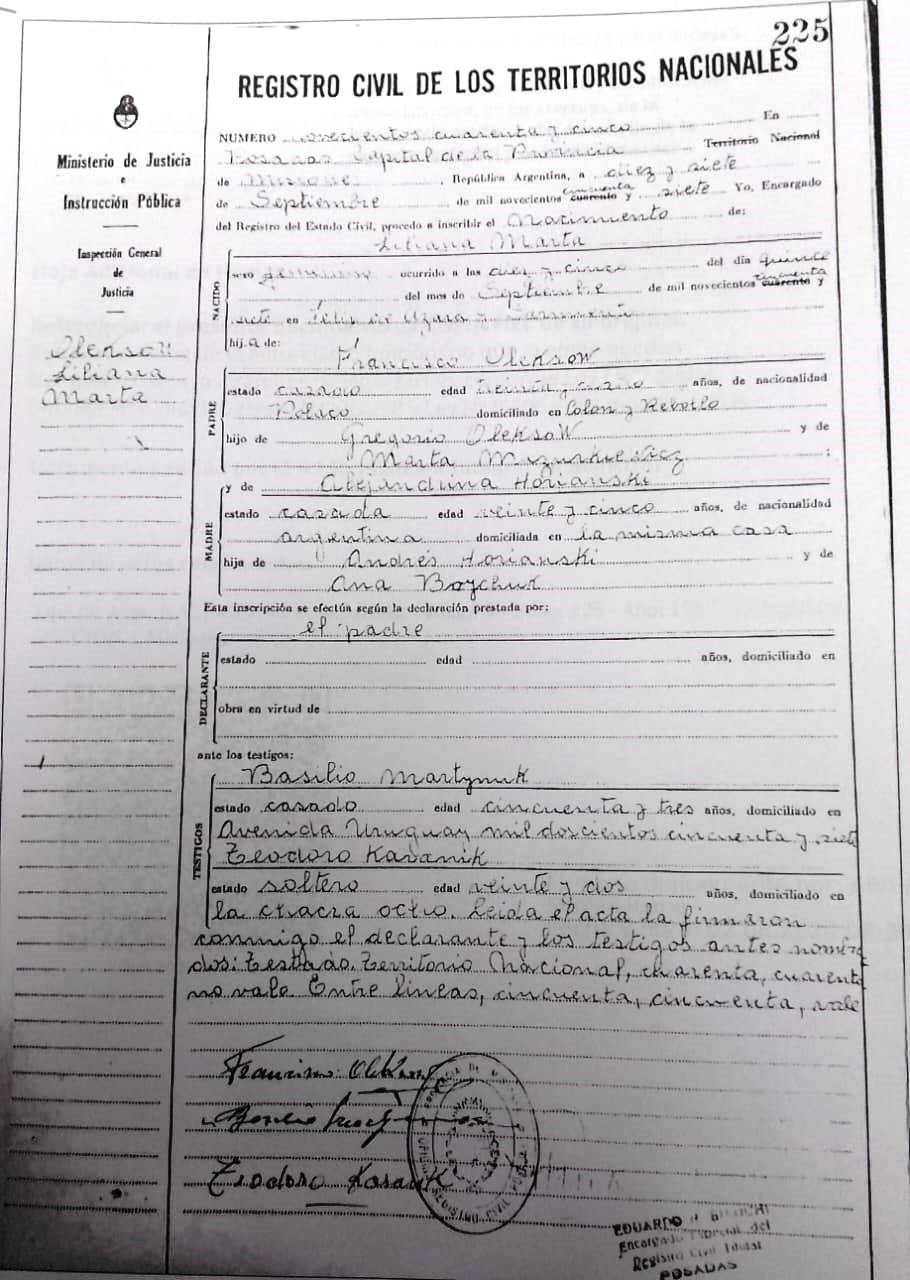 225
REGISTRO CIVIL DE LOS TERRITORIOS NACIONALES
Ministerio de Justicia
e
Instrucción Pública
Inspección General
de
Justicia
Oleksow
Liliana
Marta
NUMERO novecientos cuarenta y cinco En
Posadas Capital de la Provincia Territorio Nacional
de Misiones, República Argentina, a diez y siete
de Septiembre de mil novecientos cincuenta cuarenta y siete Yo, Encargado
del Registro del Estado Civil, procedo a inscribir el Nacimiento de:
Liliana Marta
NACIDO
sexo femenino ocurrido a las diez y cinco del día quince
del mes de Septiembre de mil novecientos cincuenta cuarenta y
siete en
hija de: Francisco Oleksow
PADRE
estado casado edad treinta y años, de nacionalidad
Polaco domiciliado en Colon y Rebollo
hijo de Gregorio Oleksow y de
Marta Mazurkiewicz;
y de Alejandrina Horianski
MADRE
estado casada edad veinte y cinco años, de nacionalidad
argentina domiciliada en la misma casa
hija de Andrés Horianski y de
Ana Boychuk
Esta inscripción se efectúa según la declaración prestada por:
el padre
DECLARANTE
estado edad años, domiciliado en
obra en virtud de
ante los testigos:
Basilio Martynuk
TESTIGOS
estado casado edad cincuenta y tres años, domiciliado en
Avenida Uruguay mil doscientos cincuenta y siete
Teodoro Karanik
estado soltero edad veinte y dos años, domiciliado en
la chacra ocho. Leída el acta la firmaron
conmigo el declarante y los testigos antes nombra
dos: Testado, Territorio Nacional, cuarenta, cuarenta
no vale Entre lineas, cincuenta, cincuenta, vale
Francisco Oleksow
Teodoro Karanik
REGISTRO CIVIL
EDUARDO
Encargado Especial del
Registro Civil
POSADAS